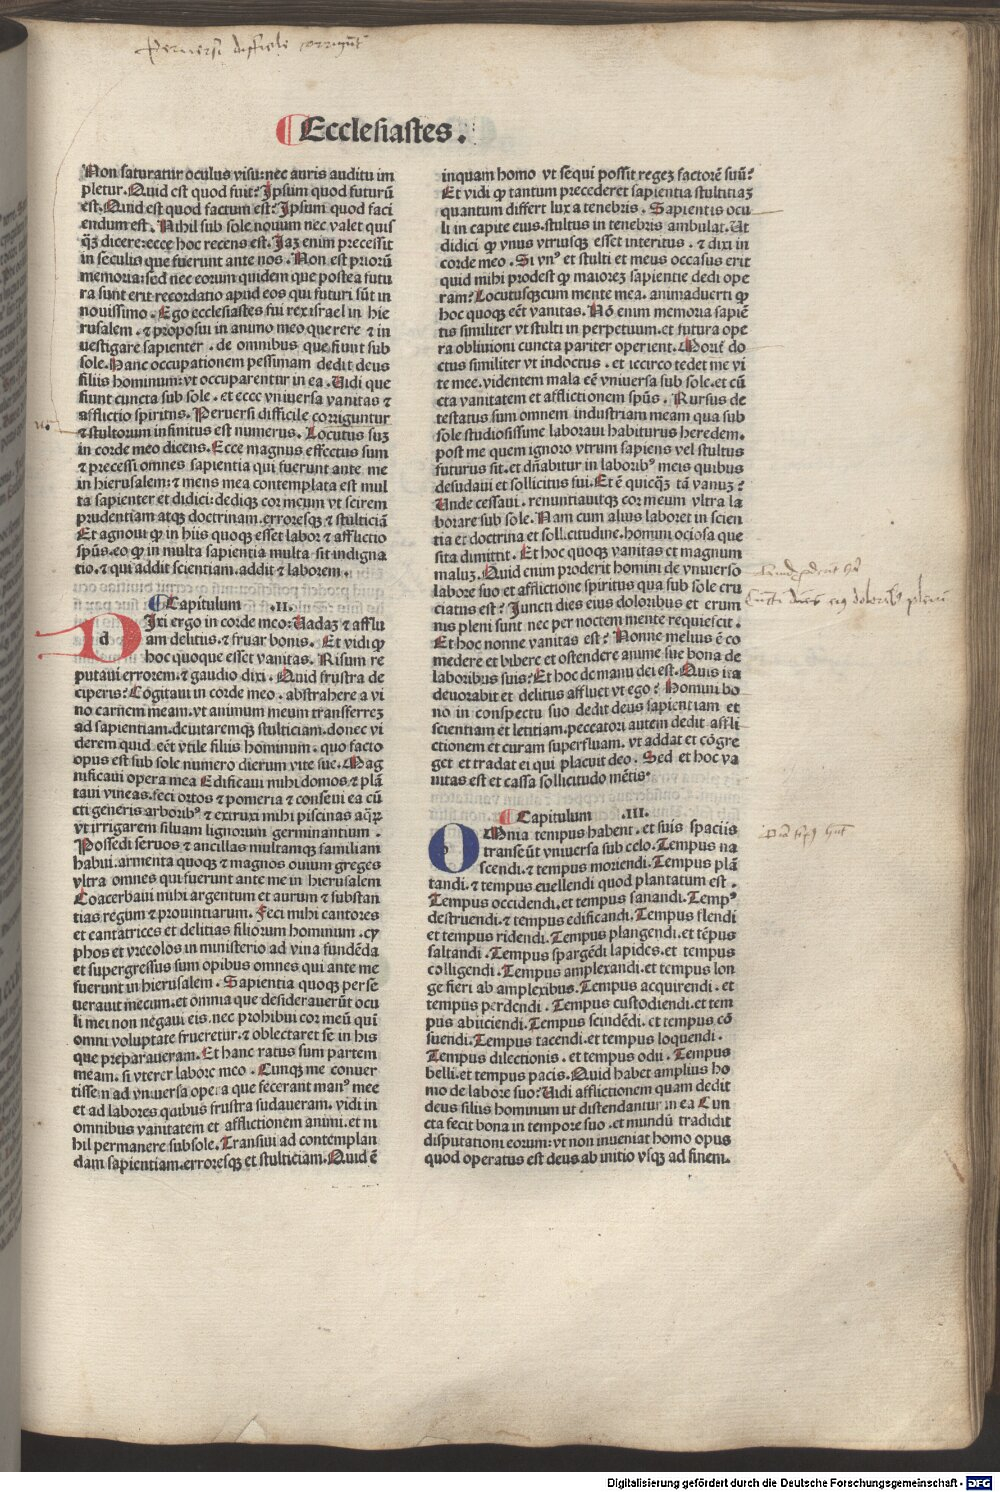 Peruersi difficile corrigunt̄
Ecclesiastes.
Non saturatur oculus visu: nec auris auditu im
pletur. Quid est quod fuit? Ipsum quod futurū
est. Quid est quod factum est? Ipsum quod faci
endum est. Nihil sub sole nouum nec valet quis
qȝ dicere: ecce hoc recens est. Iaȝ enim precessit
in seculis que fuerunt ante nos. Non est priorū
memoria: sed nec eorum quidem que postea futu
ra sunt erit recordatio apud eos qui futuri sūt in
nouissimo. Ego ecclesiastes fui rex israel in hie
rusalem. ⁊ proposui in animo meo querere ⁊ in
uestigare sapienter. de omnibus que fiunt sub
sole. Hanc occupationem pessimam dedit deus
filiis hominum: vt occuparentur in ea. Uidi que
fiunt cuncta sub sole. et ecce vniuersa vanitas ⁊
afflictio spiritus. Peruersi difficile corriguntur
⁊ stultorum infinitus est numerus. Locutus suȝ
in corde meo dicens. Ecce magnus effectus sum
⁊ precessi omnes sapientia qui fuerunt ante me
in hierusalem: ⁊ mens mea contemplata est mul
ta sapienter et didici: dediqȝ cor meum vt scirem
prudentiam atqȝ doctrinam. erroresqȝ ⁊ stulticiā
Et agnoui ꝙ in hiis quoqȝ esset labor ⁊ afflictio
spūs. eo ꝙ in multa sapientia multa sit indigna
tio. ⁊ qui addit scientiam. addit ⁊ laborem.
Capitulum .II.
dIxi ergo in corde meo: Uadaȝ ⁊ afflu
am delitiis. ⁊ fruar bonis. Et vidi ꝙ
hoc quoque esset vanitas. Risum re
putaui errorem. ⁊ gaudio dixi. Quid frustra de
ciperis? Cogitaui in corde meo. abstrahere a vi
no carnem meam. vt animum meum transferreȝ
ad sapientiam. deuitaremqȝ stulticiam. donec vi
derem quid eēt vtile filiis hominum. quo facto
opus est sub sole numero dierum vite sue. Mag
nificaui opera mea Edificaui mihi domos ⁊ plā
taui vineas. feci ortos ⁊ pomeria ⁊ conseui ea cū
cti generis arboribꝰ ⁊ extruxi mihi piscinas aqꝝ
vt irrigarem siluam lignorum germinantium.
Possedi seruos ⁊ ancillas multamqȝ familiam
habui. armenta quoqȝ ⁊ magnos ouium greges
vltra omnes qui fuerunt ante me in hierusalem
Coacerbaui mihi argentum et aurum ⁊ substan
tias regum ⁊ prouintiarum. Feci mihi cantores
et cantatrices et delitias filiorum hominum. cy
phos et vrceolos in ministerio ad vina fundēda
et supergressus sum opibus omnes qui ante me
fuerunt in hierusalem. Sapientia quoqȝ perse
uerauit mecum. et omnia que desiderauerūt ocu
li mei non negaui eis. nec prohibui cor meū qui
omni voluptate frueretur. ⁊ oblectaret se in his
que preparaueram. Et hanc ratus sum partem
meam. si vterer labore meo. Cunqȝ me conuer
tissem ad vniuersa opera que fecerant manꝰ mee
et ad labores quibus frustra sudaueram. vidi in
omnibus vanitatem et afflictionem animi. et ni
hil permanere sub sole. Transiui ad contemplan
dam sapientiam. erroresqȝ et stulticiam. Quid ē
inquam homo vt sequi possit regeȝ factorē suū?
Et vidi ꝙ tantum precederet sapientia stultitiaȝ
quantum differt lux a tenebris. Sapientis ocu
li in capite eius. stultus in tenebris ambulat. Et
didici ꝙ vnus vtriusqȝ esset interitus. ⁊ dixi in
corde meo. Si vnꝰ et stulti et meus occasus erit
quid mihi prodest ꝙ maioreȝ sapientie dedi ope
ram? Locutusqȝ cum mente mea. animaduerti ꝙ
hoc quoqȝ eēt vanitas. Nō enim memoria sapiē
tis similiter vt stulti in perpetuum. et futura ope
ra obliuioni cuncta pariter operient. Moriē do
ctus similiter vt indoctus. et iccirco tedet me vi
te mee. videntem mala eē vniuersa sub sole. et cū
cta vanitatem et afflictionem spūs. Rursus de
testatus sum omnem industriam meam qua sub
sole studiosissime laboraui habiturus heredem.
post me quem ignoro vtrum sapiens vel stultus
futurus sit. et dn̄abitur in laboribꝰ meis quibus
desudaui et sollicitus fui. Et ē quicqȝ tā vanuȝ?
Unde cessaui. renuntiauitqȝ cor meum vltra la
borare sub sole. Nam cum alius laboret in scien
tia et doctrina et sollicitudine. homini ociosa que
sita dimittit. Et hoc quoqȝ vanitas et magnum
maluȝ. Quid enim proderit homini de vniuerso
labore suo et afflictione spiritus qua sub sole cru
ciatus est? Iuncti dies eius doloribus et erum
nis pleni sunt nec per noctem mente requiescit.
Et hoc nonne vanitas est? Nonne melius ē co
medere et bibere et ostendere anime sue bona de
laboribus suis? Et hoc de manu dei est. Quis ita
deuorabit et delitiis affluet vt ego? Homini bo
no in conspectu suo dedit deus sapientiam et
scientiam et letitiam. peccatori autem dedit affli
ctionem et curam superfluam. vt addat et cōgre
get et tradat ei qui placuit deo. Sed et hoc va
nitas est et cassa sollicitudo mētis.
Cuncti dies eius doloribꝰ pleni
Capitulum .III.
oMnia tempus habent. et suis spaciis
transeūt vniuersa sub celo. Tempus na
scendi. ⁊ tempus moriendi. Tempus plā
tandi. ⁊ tempus euellendi quod plantatum est.
Tempus occidendi. et tempus sanandi. Tempꝰ
destruendi. ⁊ tempus edificandi. Tempus flendi
et tempus ridendi. Tempus plangendi. et tēpus
saltandi. Tempus spargēdi lapides. et tempus
colligendi. Tempus amplexandi. et tempus lon
ge fieri ab amplexibus. Tempus acquirendi. et
tempus perdendi. Tempus custodiendi. et tem
pus abiiciendi. Tempus scindēdi. et tempus cō
suendi. Tempus tacendi. et tempus loquendi.
Tempus dilectionis. et tempus odii. Tempus
belli. et tempus pacis. Quid habet amplius ho
mo de labore suo? Uidi afflictionem quam dedit
deus filiis hominum ut distendantur in ea Cun
cta fecit bona in tempore suo. et mundū tradidit
disputationi eorum: vt non inueniat homo opus
quod operatus est deus ab initio vsqȝ ad finem.
Digitalisierung gefördert durch die Deutsche Forschungsgemeinschaft - DFG